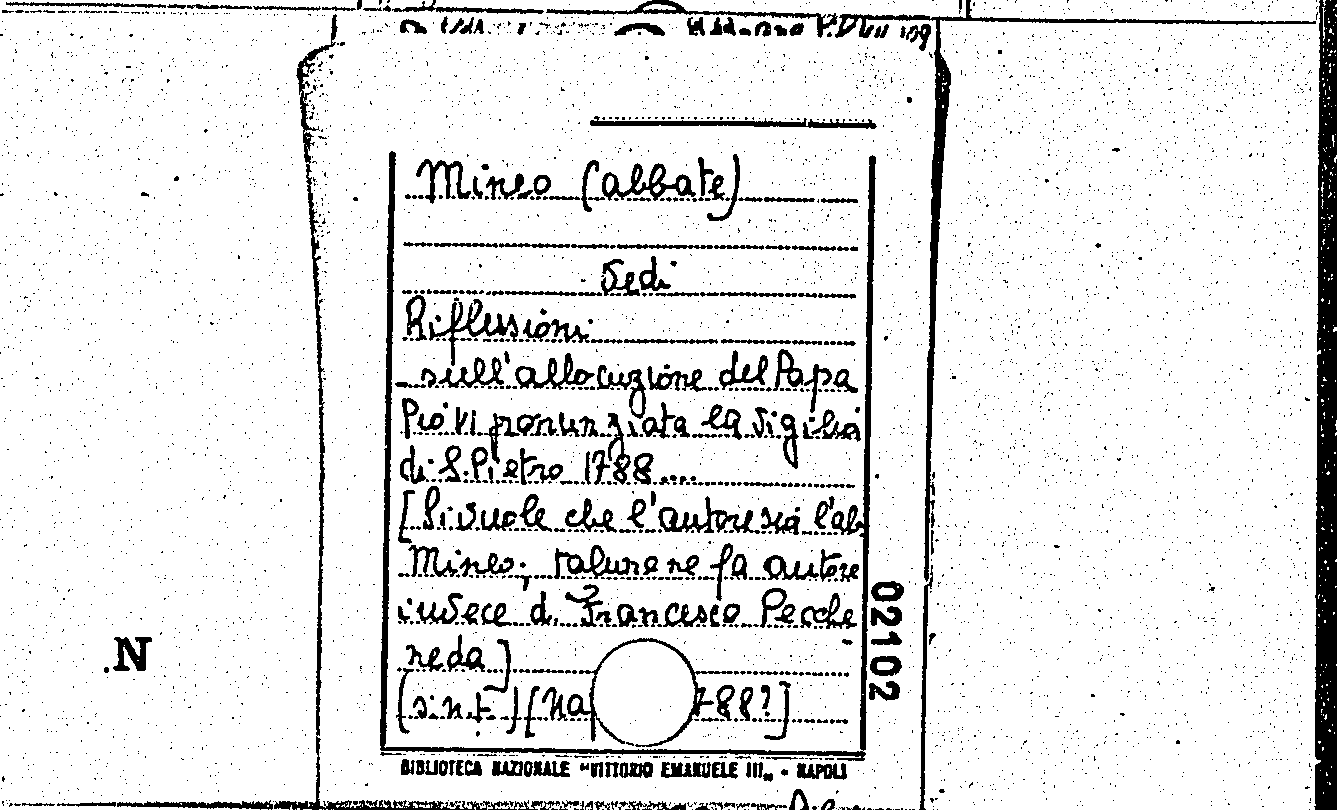 Mineo (abbate)
Vedi
Riflessioni
sull'allocuzione del Papa
Pio VI pronunziata la vigilia
di S. Pietro 1788....
[Si vuole che l'autore sia l'ab
Mineo; taluno ne fa autore
invece d. Francesco Pecche
neda]
(s.n.t.) [Na 788?]
02102
N
BIBLIOTECA NAZIONALE "VITTORIO EMANUELE III„ - NAPOLI